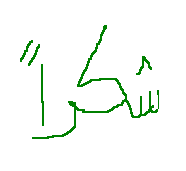 شكراً